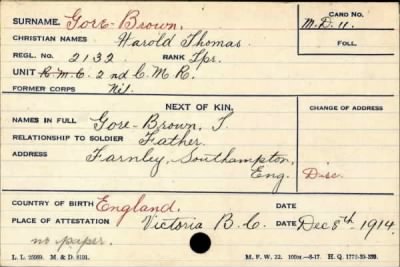 SURNAME. Gore-Brown. CARD NO.
CHRISTIAN NAMES Harold Thomas. M.D. 11.
REGL. NO. 2132 RANK Tpr. FOLL.
UNIT R.M.C. 2nd C.M.R.
FORMER CORPS Nil.
NEXT OF KIN. CHANGE OF ADDRESS
NAMES IN FULL Gore-Brown, T.
RELATIONSHIP TO SOLDIER Father.
ADDRESS Farnley, Southampton,
Eng. Disc.
COUNTRY OF BIRTH England. DATE
PLACE OF ATTESTATION Victoria B.C. DATE Dec 8th, 1914.
no paper.
L. L. M. & D. M. F. W. 22. H. Q. 1772-39-339.